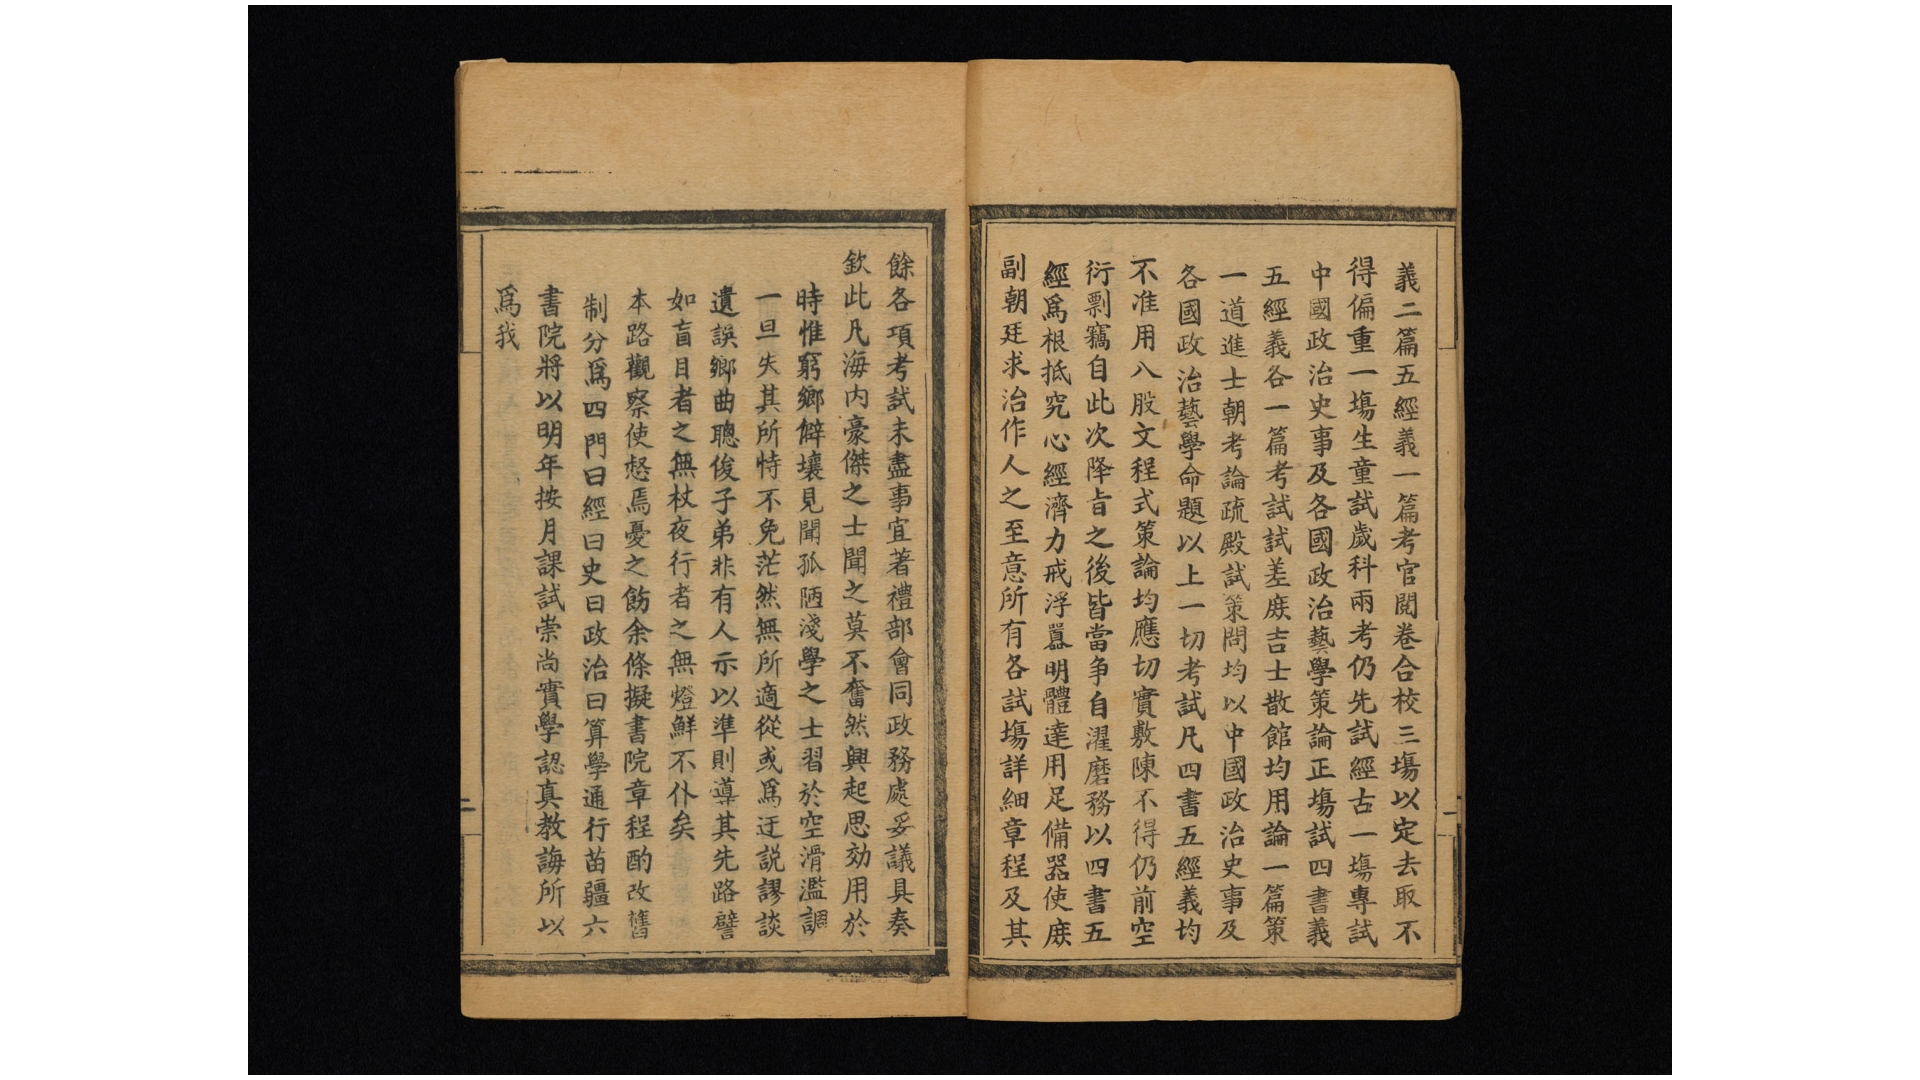 義二篇五經義一篇考官閱卷合校三塲以定去取不
得偏重一塲生童試歲科兩考仍先試經古一塲專試
中國政治史事及各國政治藝學策論正塲試四書義
五經義各一篇考試試差庻吉士散館均用論一篇策
一道進士朝考論疏殿試策問均以中國政治史事及
各國政治藝學命題以上一切考試凡四書五經義均
不准用八股文程式策論均應切實敷陳不得仍前空
衍剽竊自此次降旨之後皆當争自濯磨務以四書五
經爲根抵究心經濟力戒浮囂明體達用足備器使庻
副朝廷求治作人之至意所有各試塲詳細章程及其
餘各項考試未盡事宜著禮部會同政務處妥議具奏
欽此凡海内豪傑之士聞之莫不奮然興起思効用於
時惟窮鄉僻壤見聞孤陋淺學之士習於空滑濫調
一旦失其所恃不免茫然無所適從或爲迂説謬談
遺誤鄉曲聰俊子弟非有人示以準則導其先路譬
如盲目者之無杖夜行者之無燈鮮不仆矣
本路觀察使惄焉憂之飭余條擬書院章程酌改舊
制分爲四門曰經曰史曰政治曰算學通行苗疆六
書院將以明年按月課試崇尚實學認真教誨所以
爲我
二